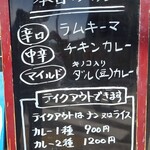 辛口 ラムキーマ
中辛 チキンカレー
キノコ入り
マイルド ダル(豆)カレー
テイクアウトできます
テイクアウトは ナン又はライス
カレー1種 900円
カレー2種 1200円